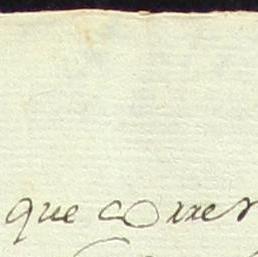 que corren